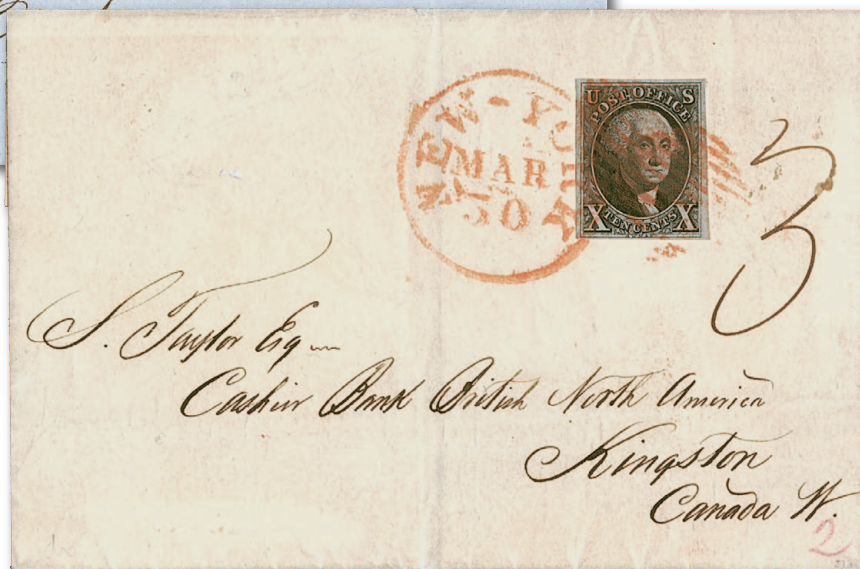 NEW-YORK
MAR
30
U S
POST OFFICE
X TEN CENTS X
3
S. Taylor Esq
Cashier Bank British North America
Kingston
Canada W.
2